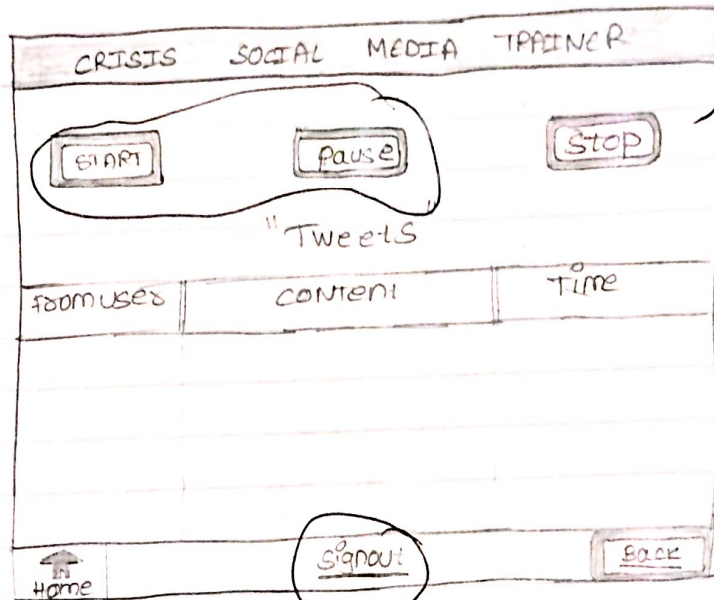 CRISIS SOCIAL MEDIA TRAINER
START Pause Stop
"Tweets"
From user CONTENT Time
Signout Back
Home